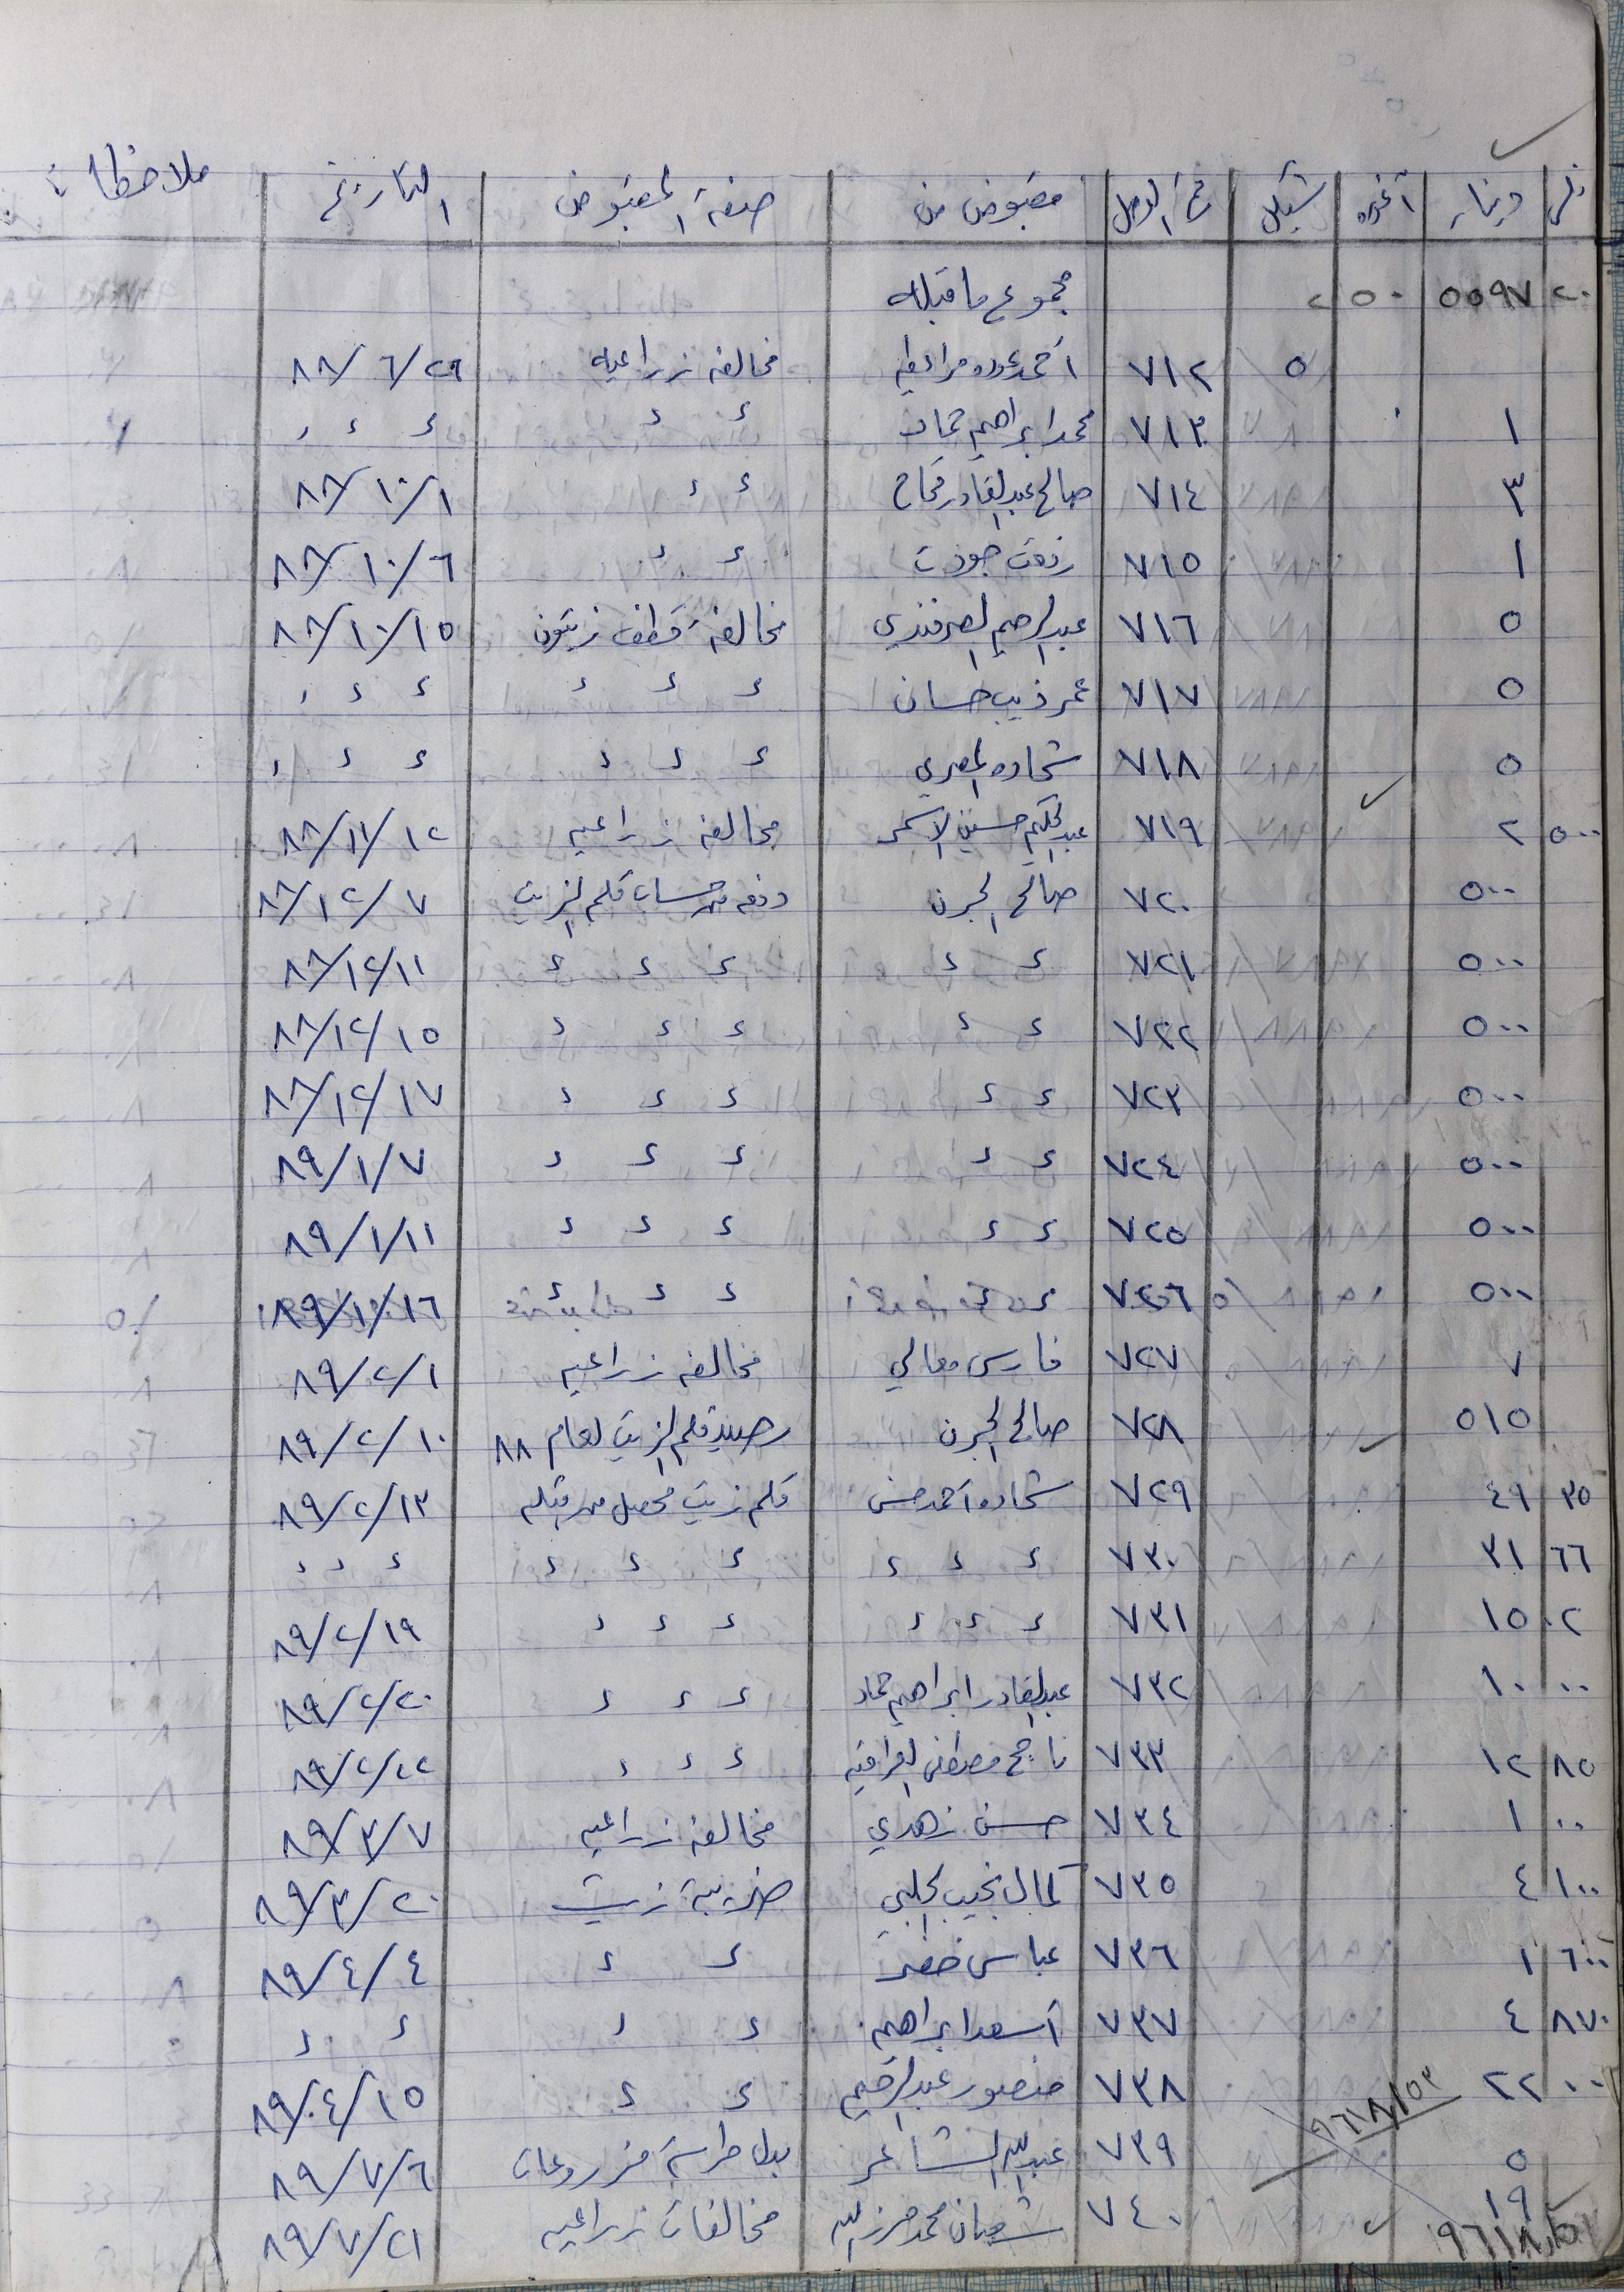 فلس دينار آغوره شيكل رقم الوصل مقبوض من صفة المقبوض التاريخ ملاحظات
٢٠ ٥٥٩٧ ٥٠ ٢ مجموع ما قبله
٥ ٧١٢ احمد عوده مخالفه زراعيه ٢٦/٦/٨٨
١ ٧١٣ محمد ابراهيم حماد ء ء ء ء ء
٣ ٧١٤ صالح عبد القادر ء ء ١/١٠/٨٨
١ ٧١٥ رفعت جودت ء ء ٦/١٠/٨٨
٥ ٧١٦ عبد الرحيم الصرفندي مخالفة قطف زيتون ١٥/١٠/٨٨
٥ ٧١٧ عمر ذيب حسان ء ء ء ء ء ء
٥ ٧١٨ شحاده المصري ء ء ء ء ء ء
٥٠٠ ٢ ٧١٩ عبد الحكيم حسين الاسمر مخالفه زراعيه ١٢/١١/٨٨
٥٠٠ ٧٢٠ صالح الجرن دفعه من حساب قلم الزيت ٧/١٢/٨٨
٥٠٠ ٧٢١ ء ء ء ء ء ١١/١٢/٨٨
٥٠٠ ٧٢٢ ء ء ء ء ء ١٥/١٢/٨٨
٥٠٠ ٧٢٣ ء ء ء ء ء ١٧/١٢/٨٨
٥٠٠ ٧٢٤ ء ء ء ء ء ٧/١/٨٩
٥٠٠ ٧٢٥ ء ء ء ء ء ١١/١/٨٩
٥٠٠ ٧٢٦ ء ء ء ء ء ١٦/١/٨٩
٧ ٧٢٧ فارس معالي مخالفه زراعيه ١/٢/٨٩
٥١٥ ٧٢٨ صالح الجرن رصيد قلم الزيت لعام ٨٨ ١٠/٢/٨٩
٣٥ ٤٩ ٧٢٩ شحاده احمد حسن قلم زيت محصل من قبله ١٣/٢/٨٩
٦٦ ٣١ ٧٣٠ ء ء ء ء ء ء ء ء ء
٠٢ ١٥ ٧٣١ ء ء ء ء ء ء ١٩/٢/٨٩
٠٠ ١٠ ٧٣٢ عبد القادر ابراهيم حماد ء ء ء ٢٠/٢/٨٩
٨٥ ١٢ ٧٣٣ ناجح مصطفى ء ء ء ٢٢/٢/٨٩
٠٠ ١ ٧٣٤ حسن زهدي مخالفه زراعيه ٧/٣/٨٩
١٠٠ ٤ ٧٣٥ كمال نجيب الحلبي ضريبة زيت ٢٠/٣/٨٩
٦٠٠ ١ ٧٣٦ عباس خضر ء ء ٤/٤/٨٩
٨٧٠ ٤ ٧٣٧ أسعد ابراهيم ء ء ء ء
٠٠ ٢٢ ٧٣٨ منصور عبد الرحيم ء ء ١٥/٤/٨٩
٩٦١٨/٥٣
٥ ٧٣٩ عبد الله الشاعر بدل حراسة مزروعات ٦/٧/٨٩
١٩ ٧٤٠ شعبان محمد حرز الله مخالفات زراعيه ٢١/٧/٨٩